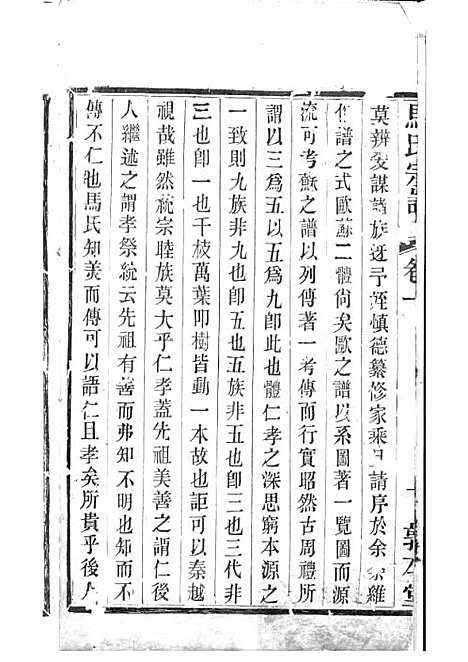 馬氏宗譜 卷一
莫辨爰謀諸族迓予姪慎德纂修家乘且請序於余余維
作譜之式歐蘇二體尚矣歐之譜以系圖著一覽圖而源
流可考蘇之譜以列傳著一考傳而行實昭然古周禮所
謂以三爲五以五爲九卽此也體仁孝之深思窮本源之
一致則九族非九也卽五也五族非五也卽三也三代非
三也卽一也千枝萬葉叩樹皆動一本故也詎可以秦越
視哉雖然統宗睦族莫大乎仁孝蓋先祖美善之謂仁後
人繼述之謂孝祭統云先祖有善而弗知不明也知而不
傳不仁也馬氏知美而傳可以語仁且孝矣所貴乎後人